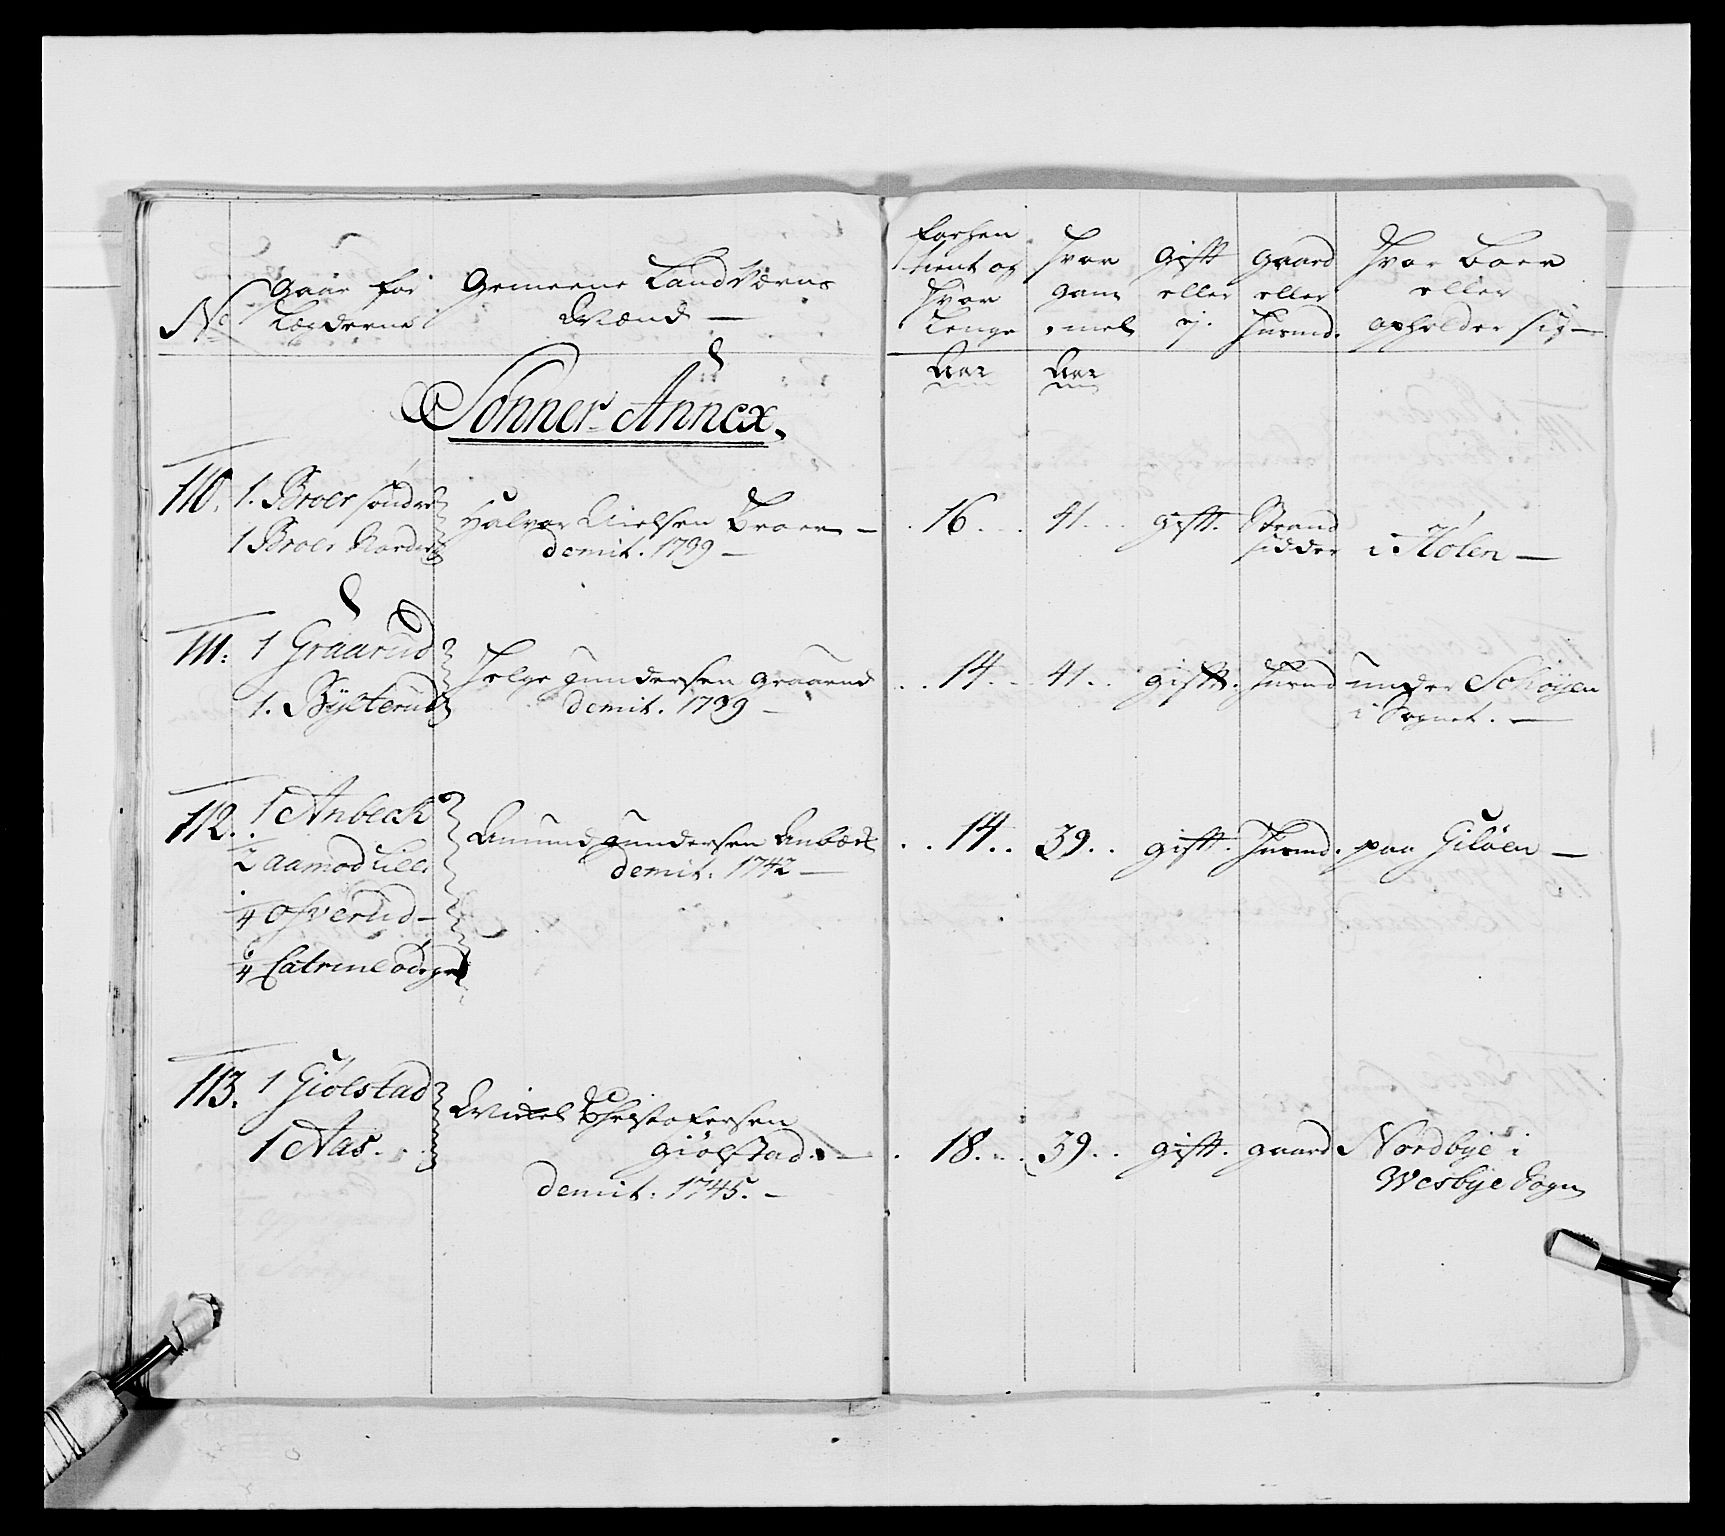 No
Gaar for
Lægderne
Gemeene Land Værns
Mænd —
forhen
tient og
hvor
lenge
hvor
gam
mel
gift
eller
ej.
gaard
eller
husmd.
hvor boer
eller
opholder sig —
Aar
Aar
Sonner Annex,
110. 1. Broer søndre
1 Broer Nordre
Halvor Nielsen Broer —
demit. 1739 —
16 41 gift. Strand
sidder i Holen —
111: 1 Graarud
1. Bÿsterud
Helge Gundersen Graarud
demit. 1739 —
14 41 gift. husmd under Schøyen
i Sognet. —
112. 1 Anbeck
1/2 Aamod
1/4 Osverud —
1/4 Catrineødegrd
Amund Gundersen Anbæck
demit. 1742 —
14 39 gift. husmd. paa Giløen —
113. 1 Giølstad
1 Aas.
Mickel Christofersen
Giølstad. —
demit. 1745. —
18 39 gift. gaard Nordbÿe i
Wesbÿe Sogn